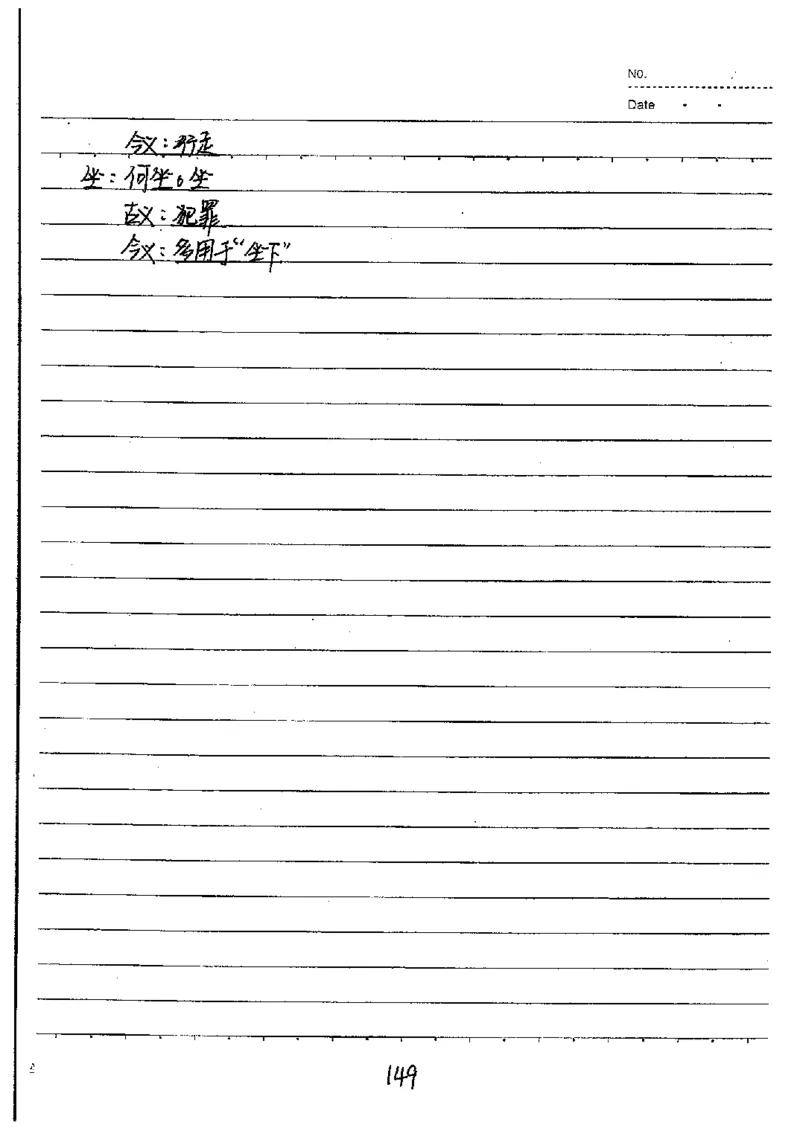 No.
Date
今义：行走
坐：何坐。坐
古义：犯罪
今义：多用于“坐下”
149